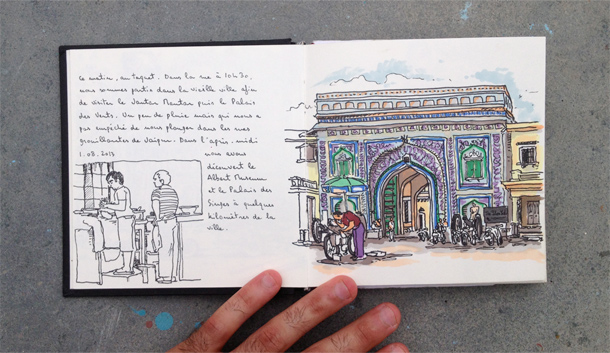 Ce matin, au taquet. Dans la rue à 10h30,
nous sommes partis dans la vieille ville afin
de visiter le Jantar Mantar puis le Palais
des Vents. Un peu de pluie mais qui nous a
pas empêché de nous plonger dans les rues
grouillantes de Jaipur. Dans l'après-midi
1.08.2013
nous avons
découvert le
Albert Museum
et le Palais des
Singes à quelques
kilomètres de la
ville.